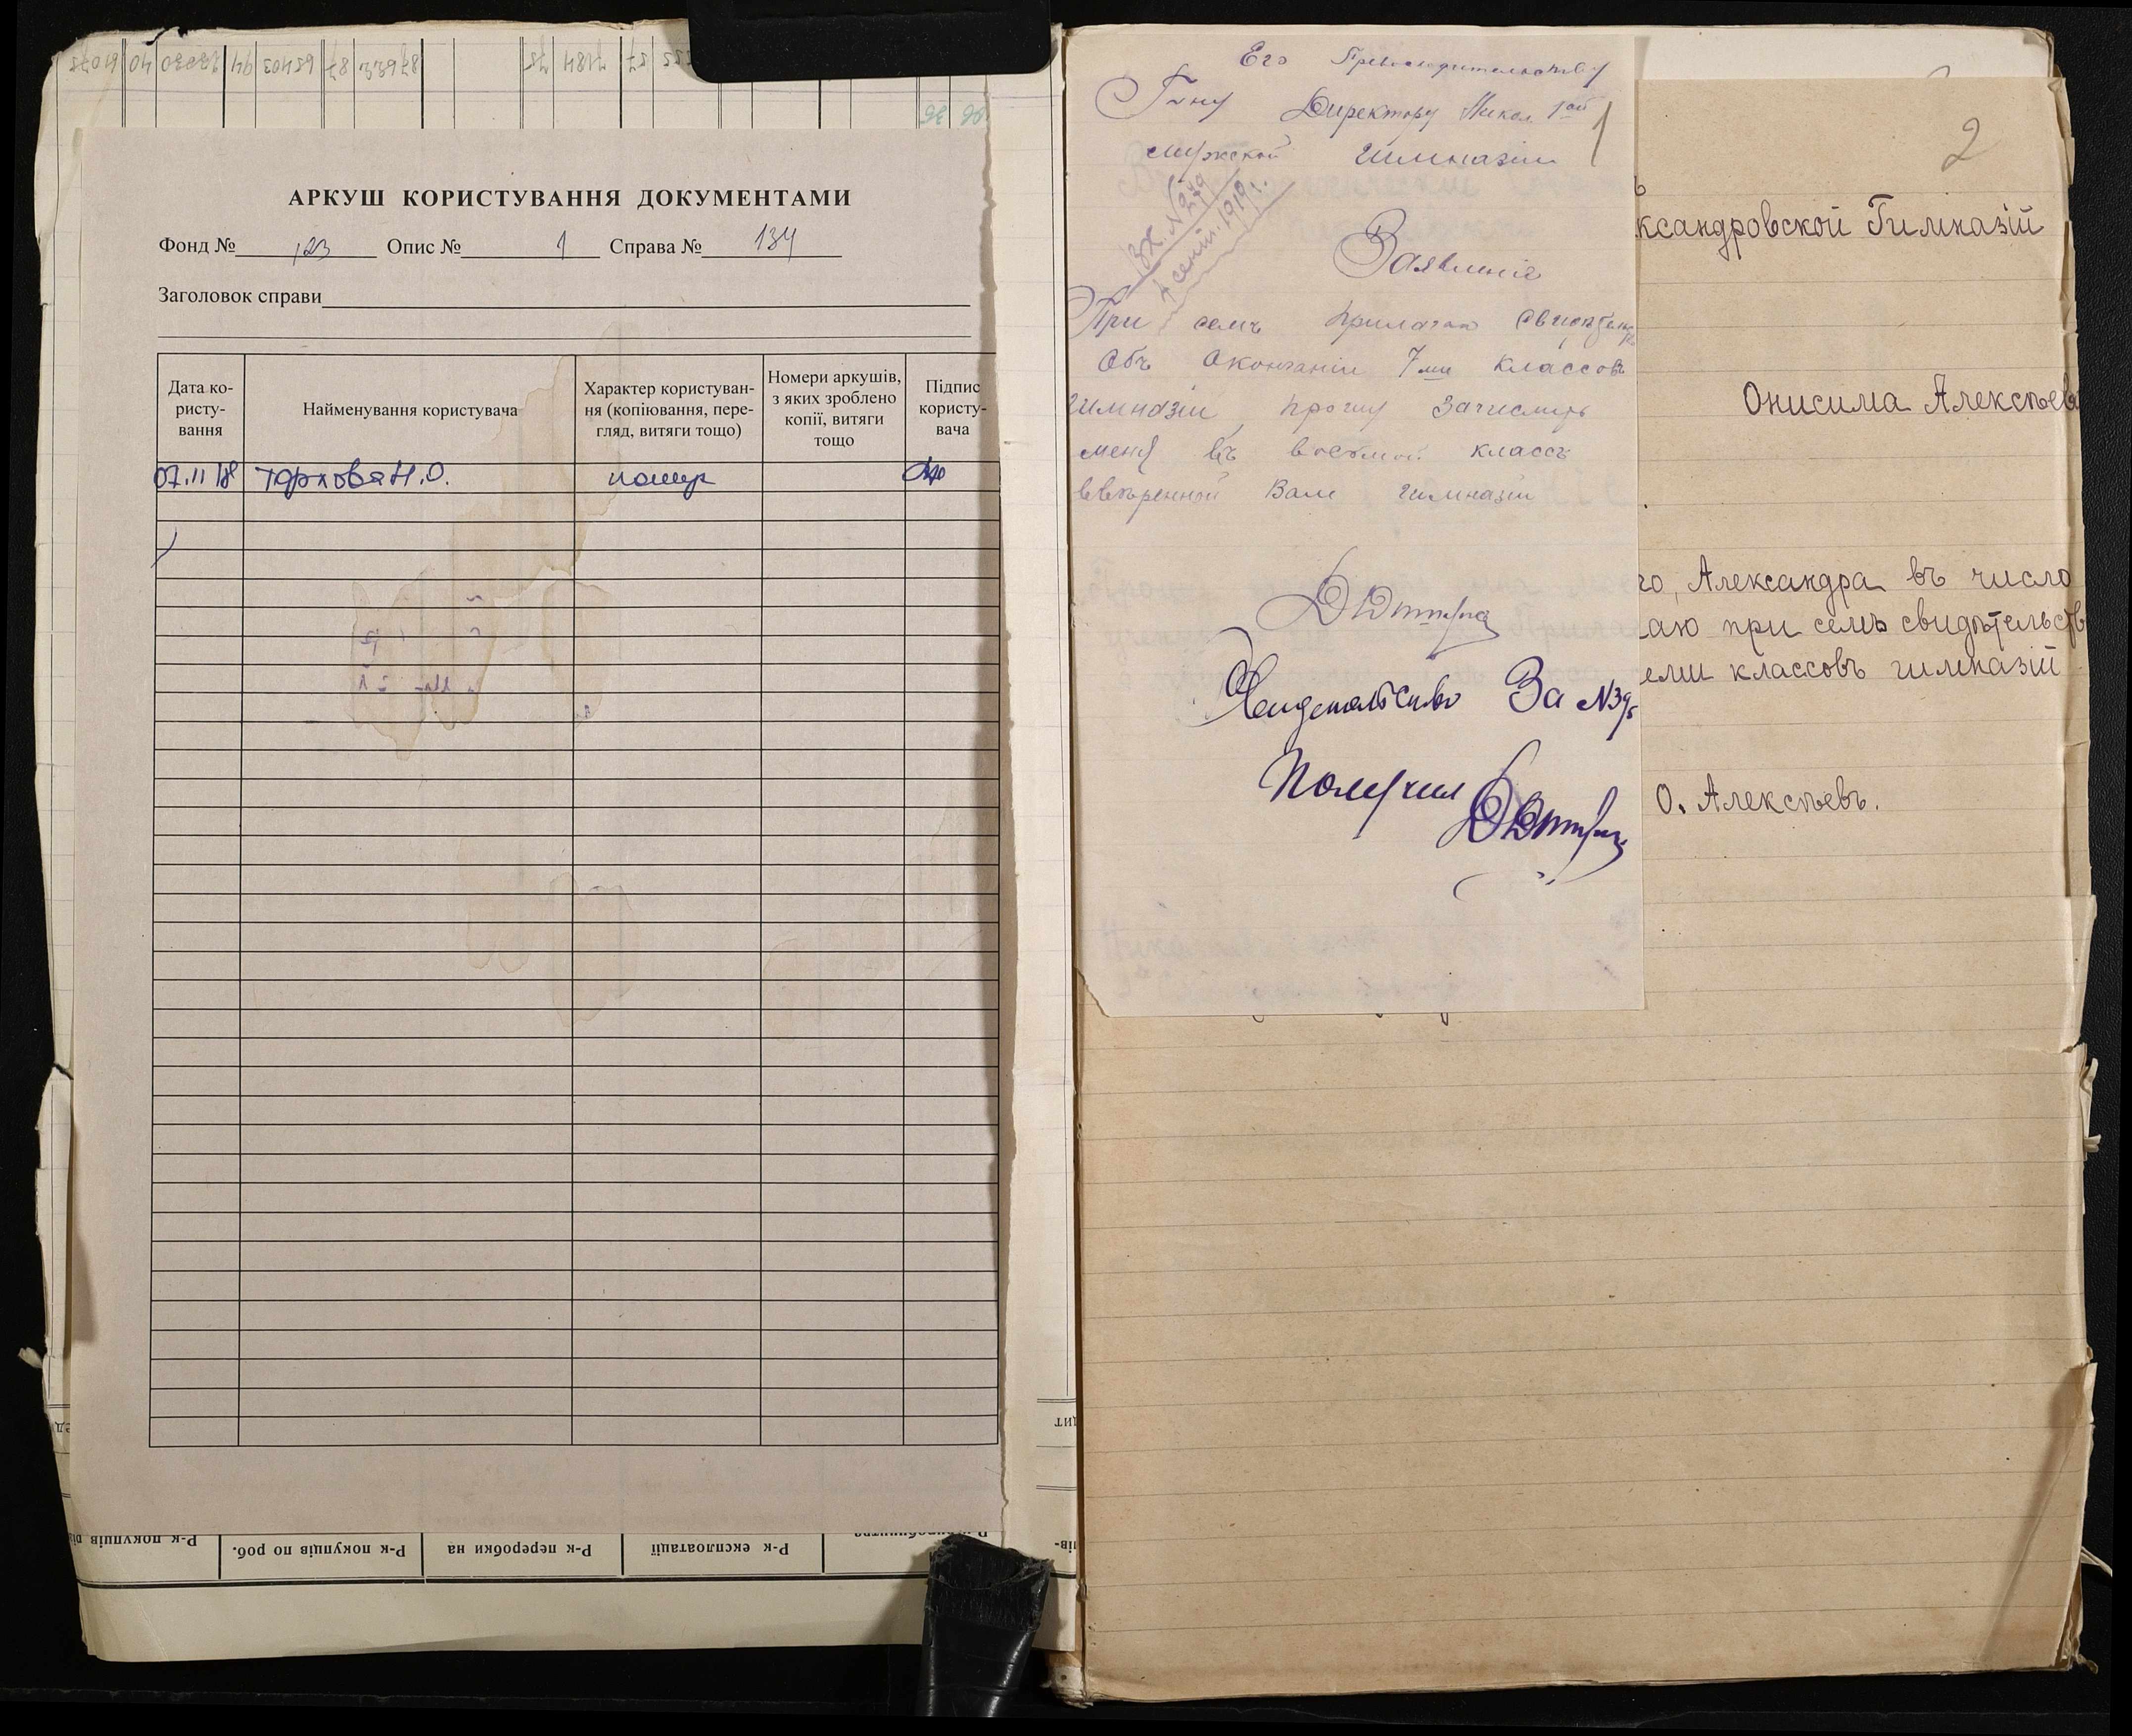 АРКУШ КОРИСТУВАННЯ ДОКУМЕНТАМИ
Фонд № 123 Опис № 1 Справа № 134
Заголовок справи
Дата ко-
ристу-
вання
Найменування користувача
Характер користуван-
ня (копіювання, пере-
гляд, витяги тощо)
Номери аркушів,
з яких зроблено
копії, витяги
тощо
Підпис
користу-
вача
07.11.18 Тархова Н.О.
Р-к покупців по роб.
Р-к переробки на
Р-к експлоатації
Его Превосходительству
Г-ну Директору Никол. 1ой
мужской гимназіи
1
Вх. № 279
4 сент. 1919 г.
Заявленіе
При семъ прилагаю
Объ окончаніи 7ми классовъ
гимназіи, прошу зачислить
меня въ восьмой классъ
ввѣренной Вам гимназіи
Свидетельство За №
Получил
2
ксандровской Гимназій
Онисима Алексѣева
го, Александра въ число
аю при семъ свидѣтельств
еми классовъ гимназій
О. Алексѣевъ.